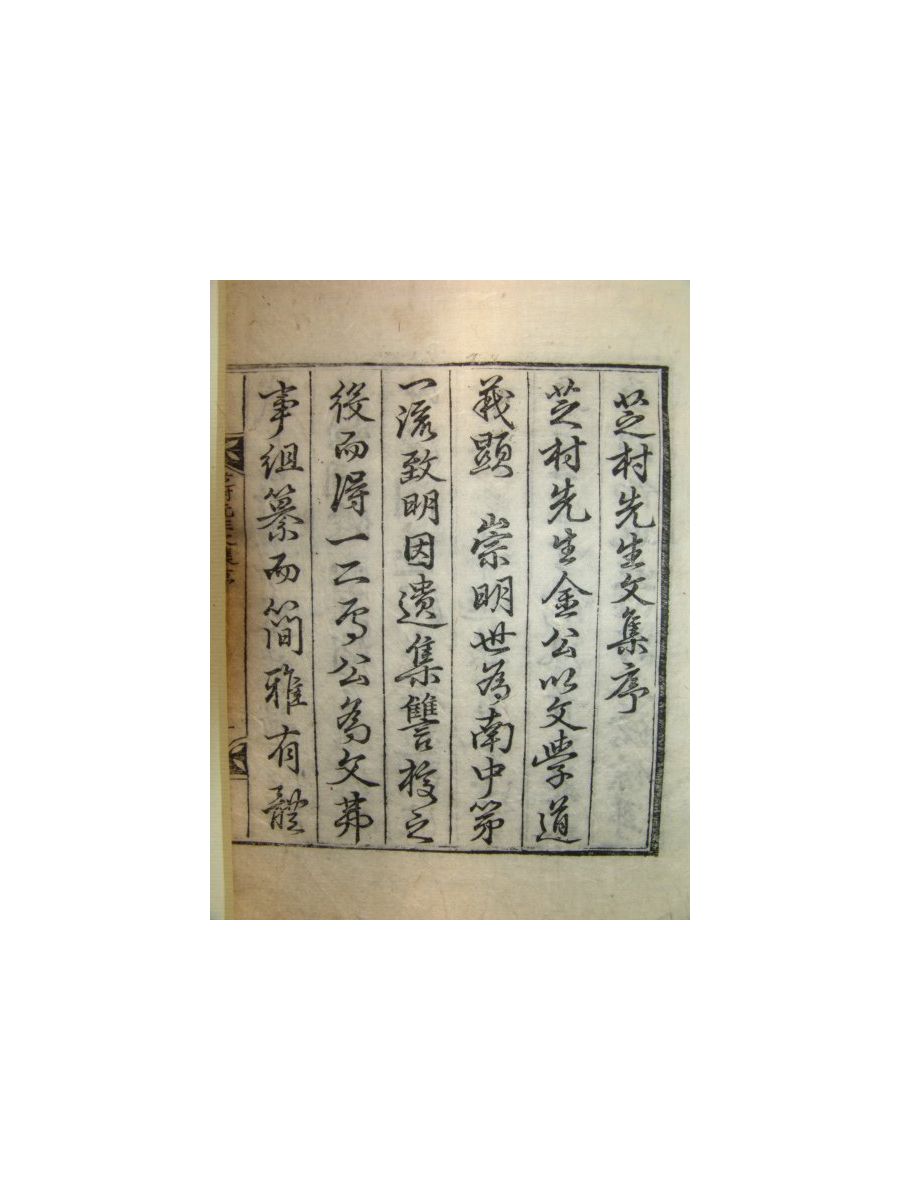 芝村先生文集序
芝村先生金公以文學道
義顯　崇明世為南中第
一流致明因遺集讐校之
後而得一二焉公為文茀
事組纂而簡雅有體
村先生文集序